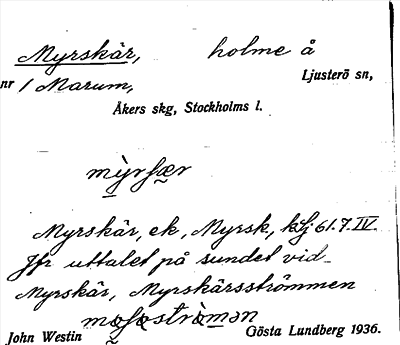 Myrskär, holme å
nr 1 Marum, Ljusterö sn,
Åkers skg, Stockholms l.
Myrskär, ek, Myrsk., 61.7.IV.
Jfr uttalet på sundet vid
Myrskär, Myrskärsströmmen
John Westin Gösta Lundberg 1936.